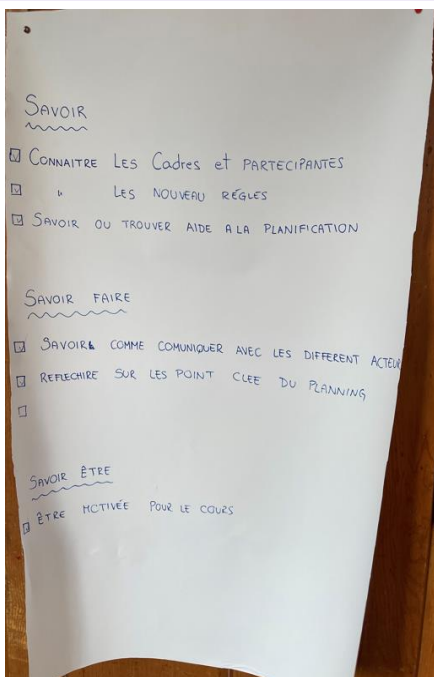 SAVOIR
☑ CONNAITRE LES Cadres et PARTECIPANTES
☑ " LES NOUVEAU REGLES
☑ SAVOIR OU TROUVER AIDE A LA PLANIFICATION
SAVOIR FAIRE
☑ SAVOIR COMME COMUNIQUER AVEC LES DIFFERENT ACTEUR
☑ REFLECHIRE SUR LES POINT CLEE DU PLANNING
☐
SAVOIR ÊTRE
☑ ÊTRE MOTIVÉE POUR LE COURS